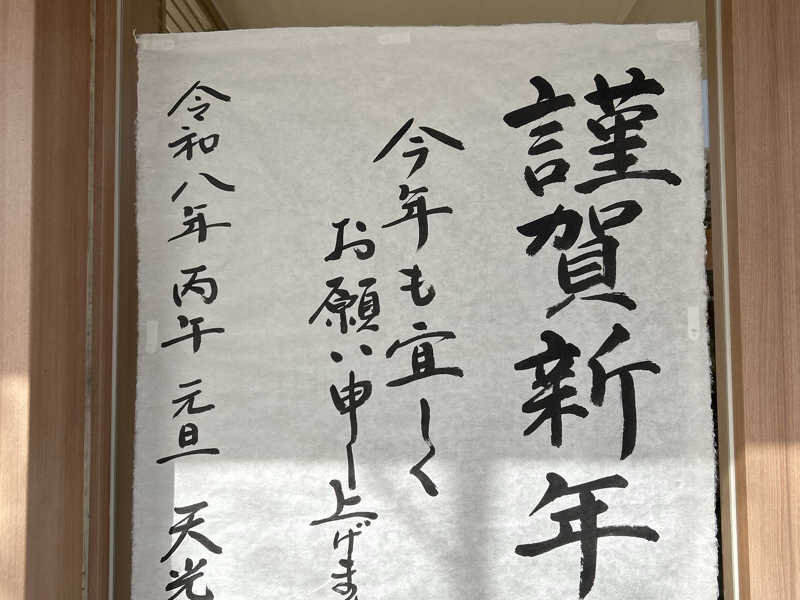 謹賀新年
今年も宜しく
お願い申し上げま
令和八年 丙午 元旦 天光